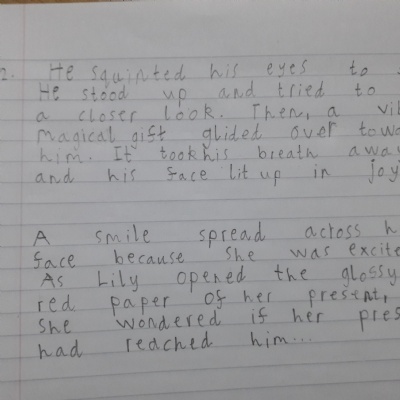 2. He squinted his eyes to
He stood up and tried to
a closer look. Then, a
magical gift glided over
him. It took his breath away
and his face lit up in joy
A smile spread across
face because she was
As Lily opened the glossy
red paper of her present,
she wondered if her
had reached him...